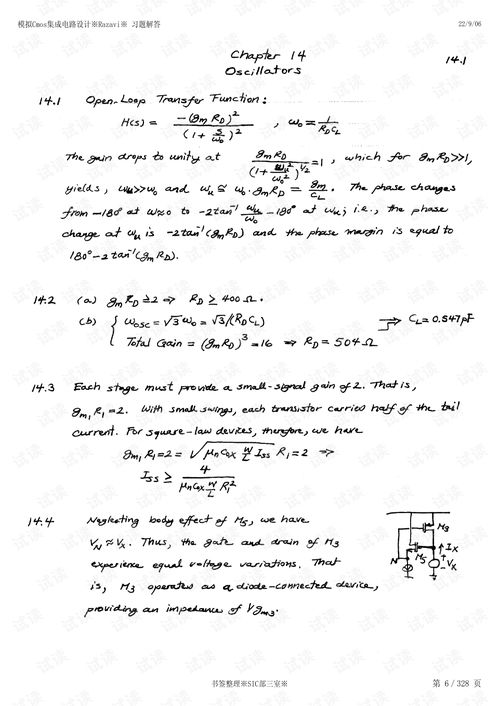 模拟Cmos集成电路设计※Razavi※ 习题解答
22/9/06
Chapter 14
Oscillators
14.1
14.1 Open-Loop Transfer Function:
H(s) = -(gm RD)² / (1 + s/ω₀)² , ω₀ = 1/(RD CL)
The gain drops to unity at gm RD / (1 + ωu²/ω₀²)^1/2 = 1 , which for gm RD >> 1,
yields, ωu >> ω₀ and ωu ≅ ω₀·gm RD = gm/CL . The phase changes
from -180° at ω≈0 to -2tan⁻¹ ωu/ω₀ -180° at ωu; i.e., the phase
change at ωu is -2tan⁻¹(gm RD) and the phase margin is equal to
180° - 2 tan⁻¹(gm RD).
14.2 (a) gm RD ≥ 2 ⇒ RD ≥ 400 Ω.
(b) { ωosc = √3 ω₀ = √3/(RD CL) → CL = 0.547 pF
Total Gain = (gm RD)³ = 16 ⇒ RD = 504 Ω
14.3 Each stage must provide a small-signal gain of 2. That is,
gm1 R1 = 2. With small swings, each transistor carries half of the tail
current. For square-law devices, therefore, we have
gm1 R1 = 2 = √(μn Cox W/L Iss) R1 = 2 ⇒
Iss ≥ 4 / (μn Cox W/L R1²)
14.4 Neglecting body effect of M5, we have
VN ≈ VX. Thus, the gate and drain of M3
experience equal voltage variations. That
is, M3 operates as a diode-connected device,
providing an impedance of 1/gm3.
M3
IX
M5
N
VX
书签整理※SIC部三室※
第 6 / 328 页